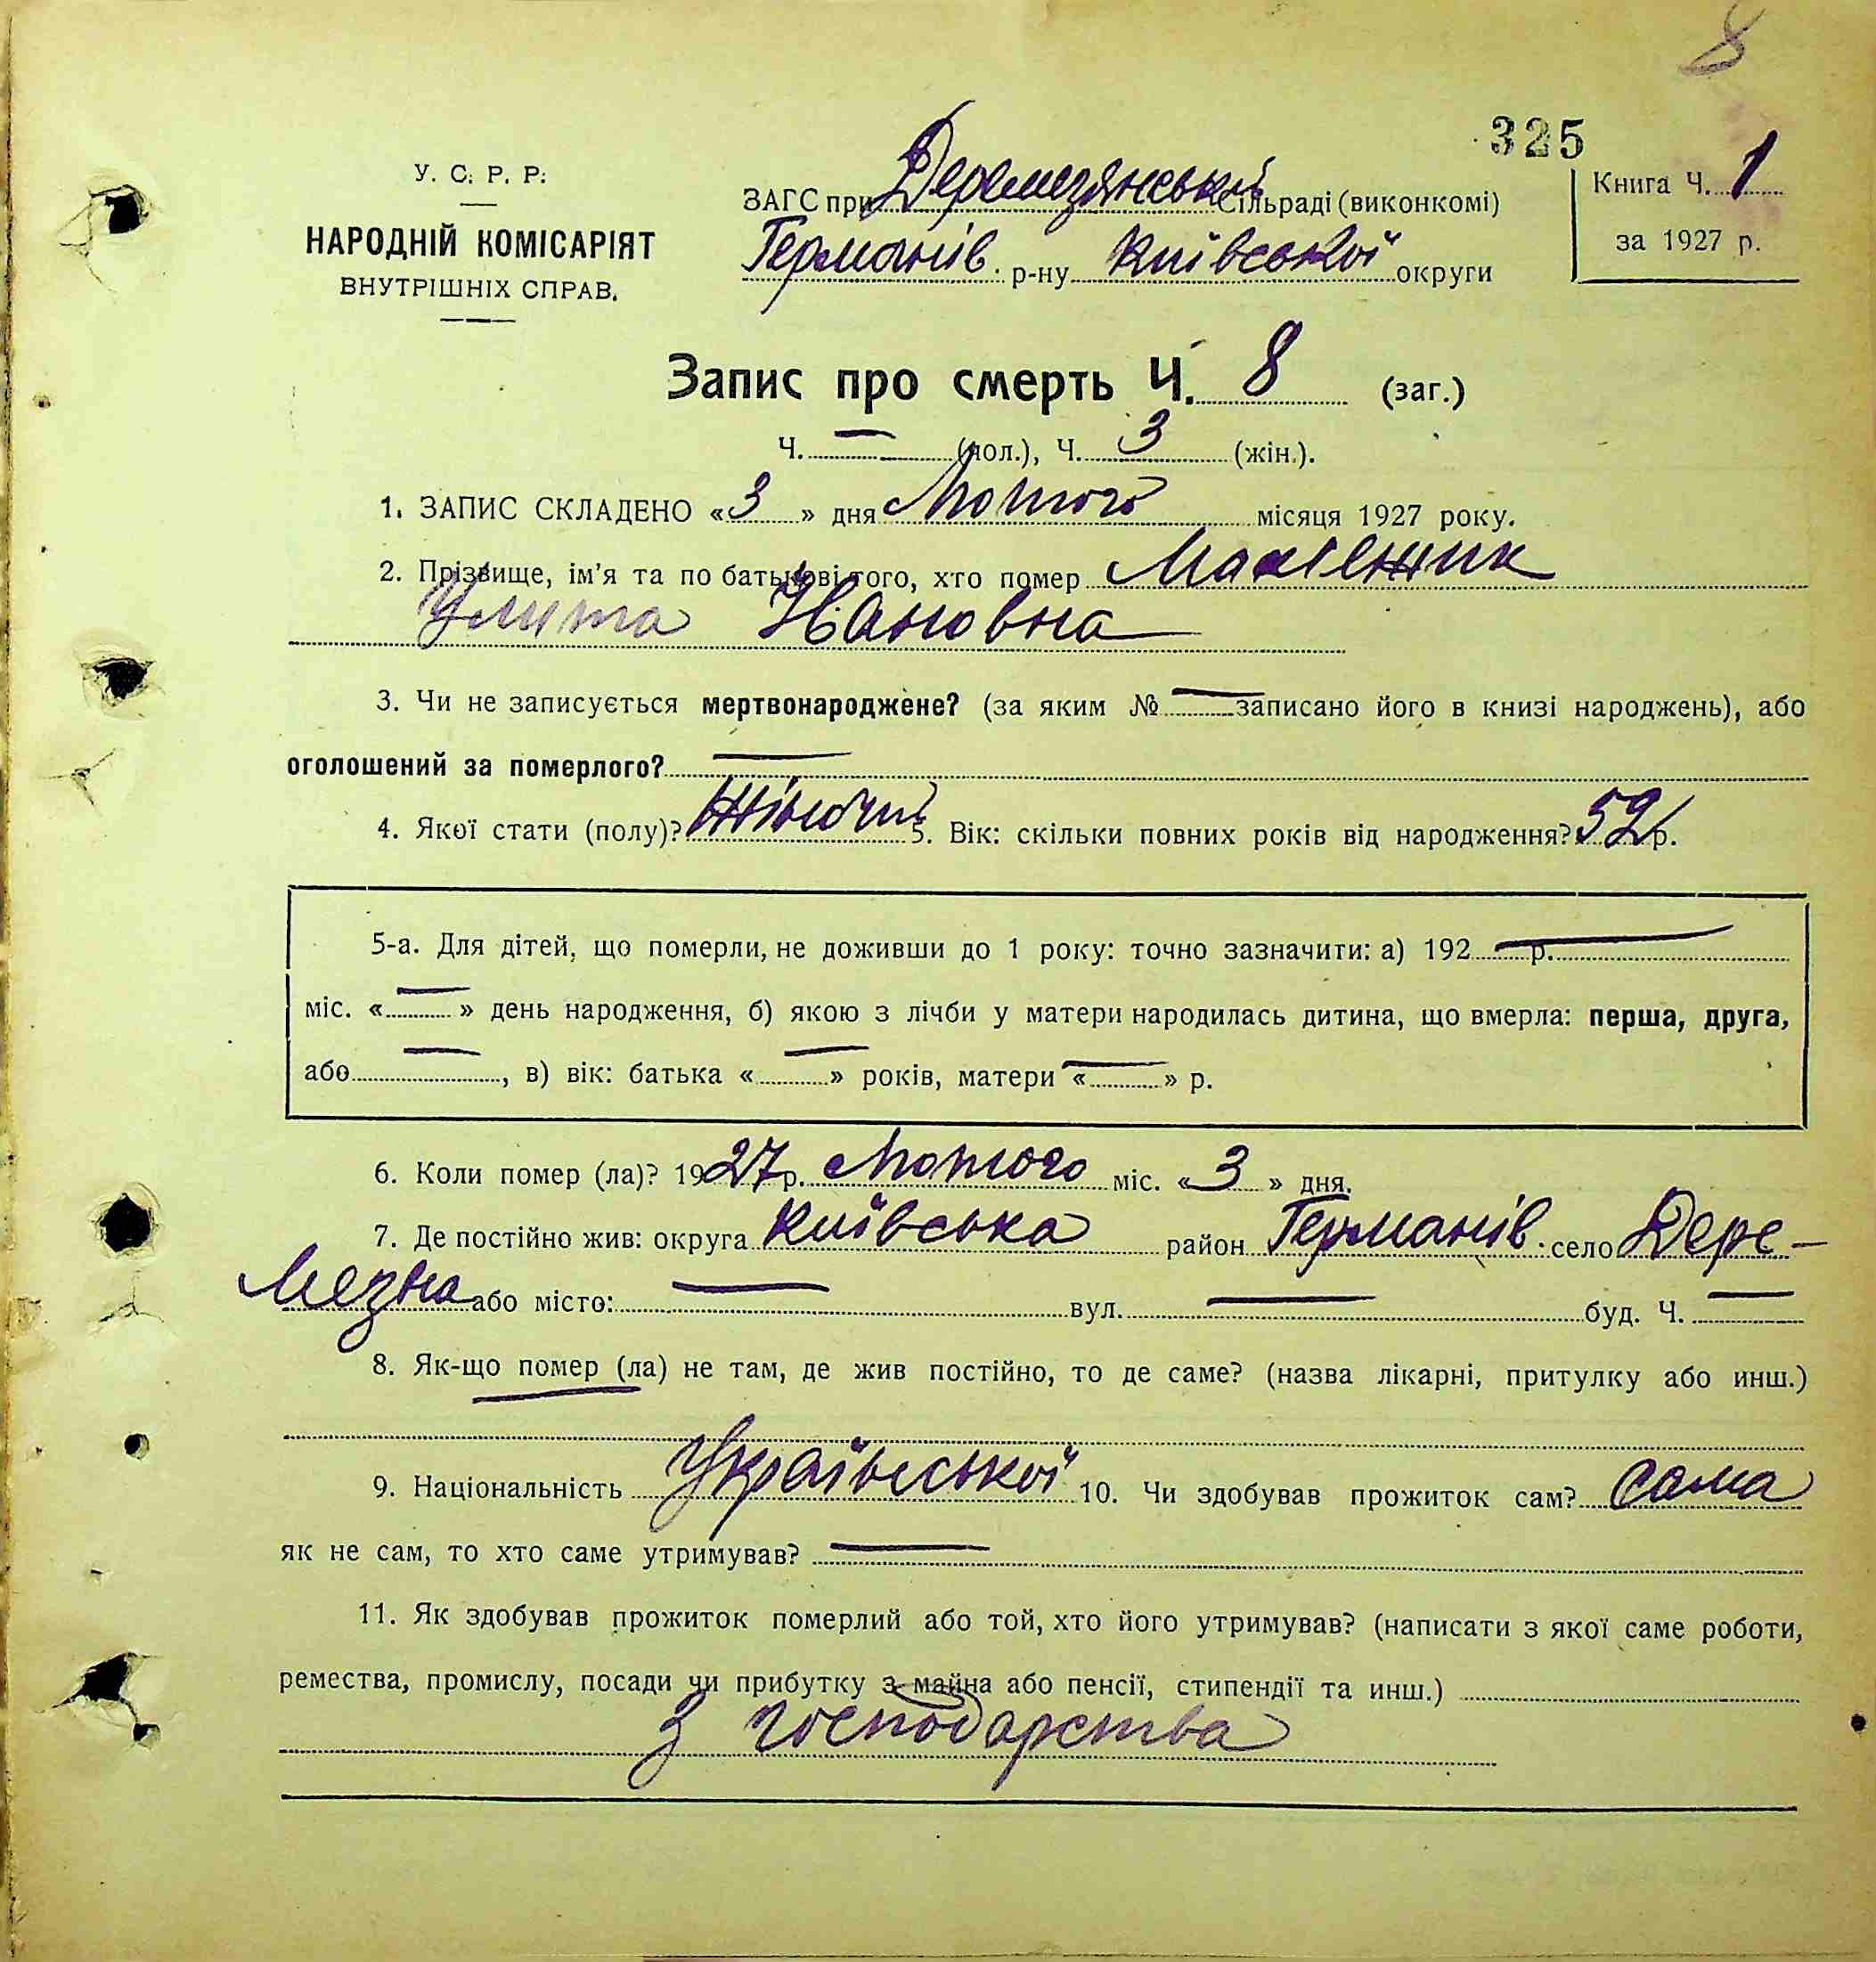 8
325
У. С. Р. Р.
НАРОДНІЙ КОМІСАРІЯТ
ВНУТРІШНІХ СПРАВ.
ЗАГС при Деремезянській Сільраді (виконкомі)
Германів. р-ну Київської округи
Книга Ч. 1
за 1927 р.
Запис про смерть Ч. 8 (заг.)
Ч. — (чол.), Ч. 3 (жін.).
1. ЗАПИС СКЛАДЕНО «3» дня Лютого місяця 1927 року.
2. Прізвище, ім'я та по батькові того, хто помер
Улита Івановна
3. Чи не записується мертвонароджене? (за яким № — записано його в книзі народжень), або
оголошений за померлого? —
4. Якої стати (полу)? Жіночий 5. Вік: скільки повних років від народження? 52 р.
5-а. Для дітей, що померли, не доживши до 1 року: точно зазначити: а) 192 — р. —
міс. «—» день народження, б) якою з лічби у матери народилась дитина, що вмерла: перша, друга,
або —, в) вік: батька «—» років, матери «—» р.
6. Коли помер (ла)? 1927 р. Лютого міс. «3» дня.
7. Де постійно жив: округа Київська район Германів. село Дере-
мезна або місто: — вул. — буд. Ч. —
8. Як-що помер (ла) не там, де жив постійно, то де саме? (назва лікарні, притулку або инш.)
—
9. Національність Української 10. Чи здобував прожиток сам? сама
як не сам, то хто саме утримував? —
11. Як здобував прожиток померлий або той, хто його утримував? (написати з якої саме роботи,
ремества, промислу, посади чи прибутку з майна або пенсії, стипендії та инш.)
З господарства